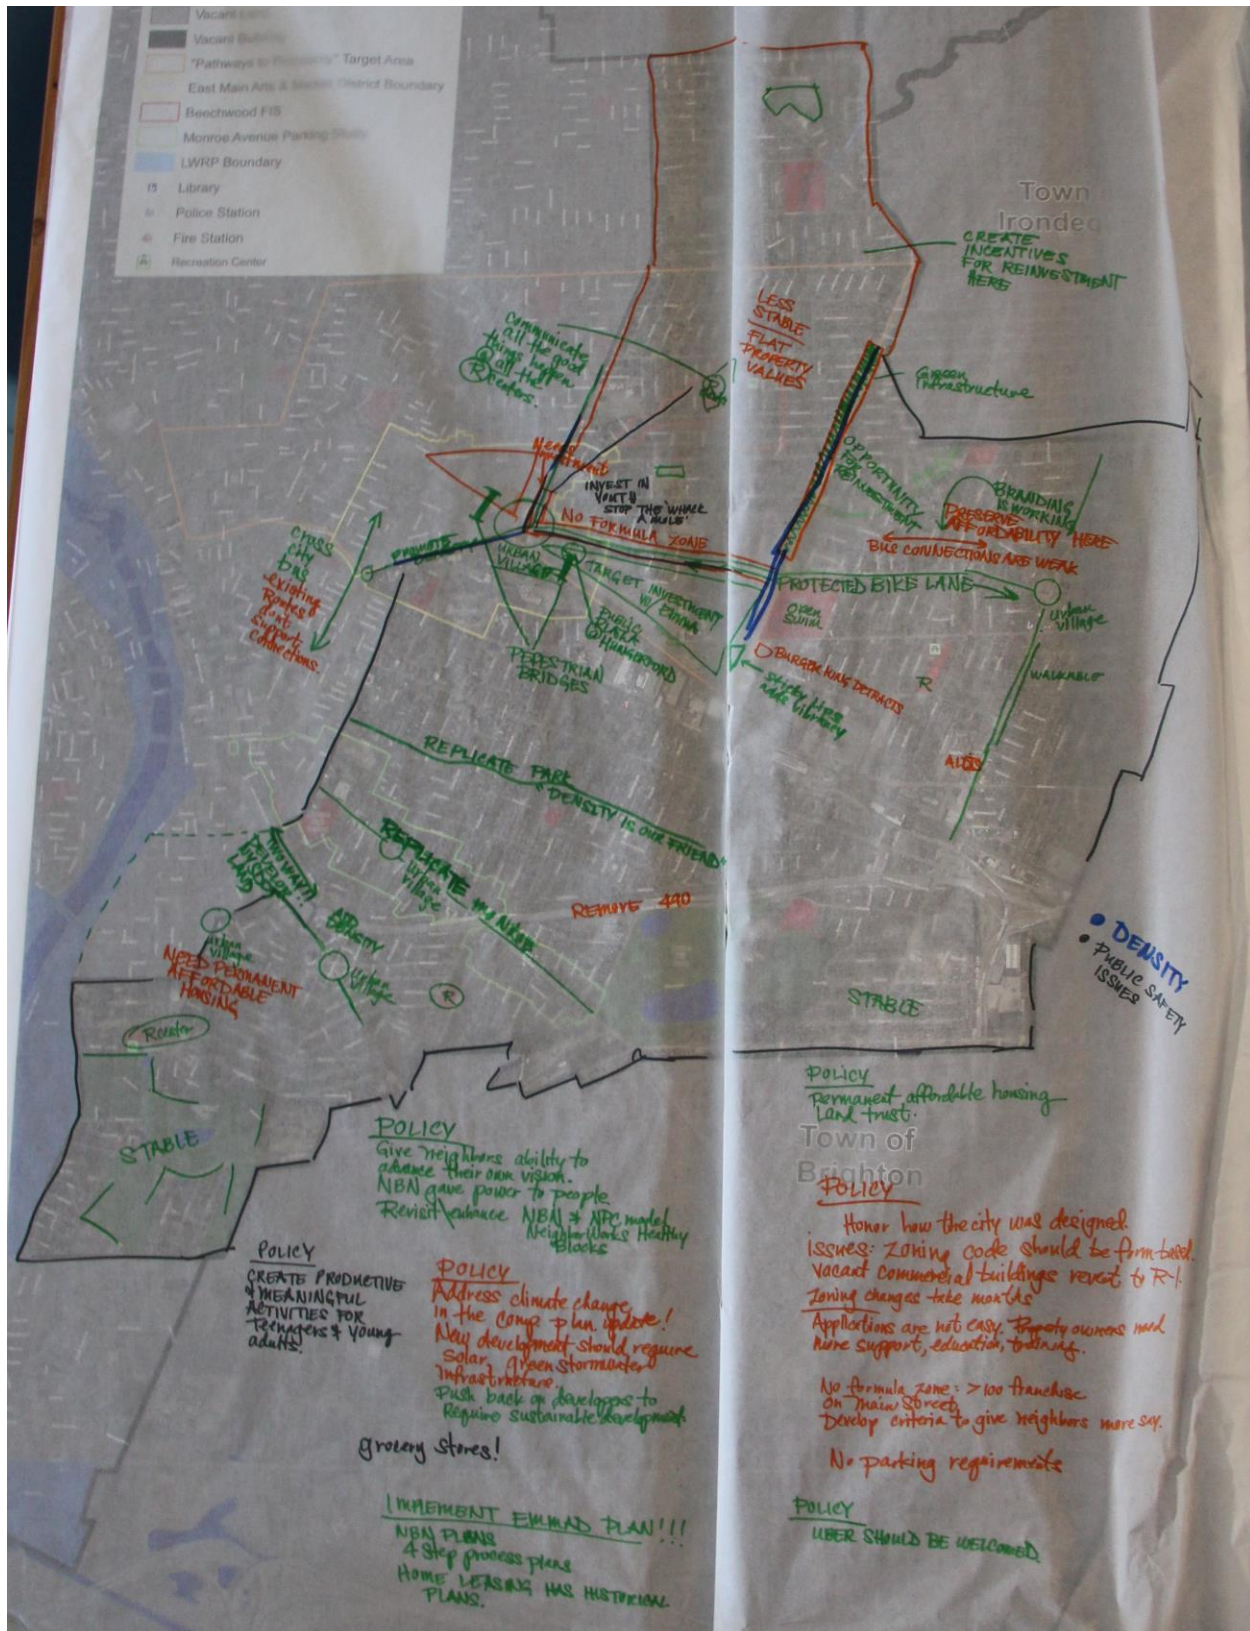 Vacant
Vacant
"Pathways to Prosperity" Target Area
East Main Arts & Market District Boundary
Beechwood FIS
Monroe Avenue Parking Study
LWRP Boundary
Library
Police Station
Fire Station
R Recreation Center
Town
Irondeq
CREATE
INCENTIVES
FOR REINVESTMENT
HERE
LESS
STABLE
FLAT
PROPERTY
VALUES
Communicate
all the good
things happen
@ all the
R centers.
Green
Infrastructure
OPPORTUNITY
FOR
REINVESTMENT
Needs
investment
INVEST IN
YOUTH
STOP THE 'WHACK
A MOLE'
NO FORMULA ZONE
BRANDING
IS WORKING
PRESERVE
AFFORDABILITY HERE
BUS CONNECTIONS ARE WEAK
PROTECTED BIKE LANE
Cross
city
bus
existing
Routes
don't
support
connections.
PROMOTE
URBAN
VILLAGE
TARGET INVESTMENT
W/ EMMA
PUBLIC
PARK
@
HUNGERFORD
PEDESTRIAN
BRIDGES
Open
Swim
urban
village
BURGER KING DETRACTS
R
WALKABLE
ALDIS
REPLICATE PARK
"DENSITY IS OUR FRIEND"
REPLICATE MONROE
urban
village
TWO WAY!!
DEVELOP
REMOVE 490
ADD
DENSITY
urban
village
NEED PERMANENT
AFFORDABLE
HOUSING
urban
village
R
R center
STABLE
STABLE
DENSITY
PUBLIC SAFETY
ISSUES
POLICY
Permanent affordable housing
Land trust.
Town of
Brighton
POLICY
Give neighbors ability to
advance their own vision.
NBN gave power to people
Revisit/enhance NBN & NPC model
NeighborWorks Healthy
Blocks
POLICY
Honor how the city was designed.
issues: zoning code should be form-based.
vacant commercial buildings revert to R-1.
zoning changes take months
Applications are not easy. Property owners need
more support, education, training.
No formula zone: >100 franchise
on Main Street,
Develop criteria to give neighbors more say.
No parking requirements
POLICY
CREATE PRODUCTIVE
& MEANINGFUL
ACTIVITIES FOR
Teenagers & young
adults.
POLICY
Address climate change
in the comp. plan update!
New development should require
solar, green stormwater
infrastructure.
Push back on developers to
Require sustainable development
grocery stores!
IMPLEMENT EMMAD PLAN!!!
NBN PLANS
4 Step process plans
HOME LEASING HAS HISTORICAL
PLANS.
POLICY
UBER SHOULD BE WELCOMED.